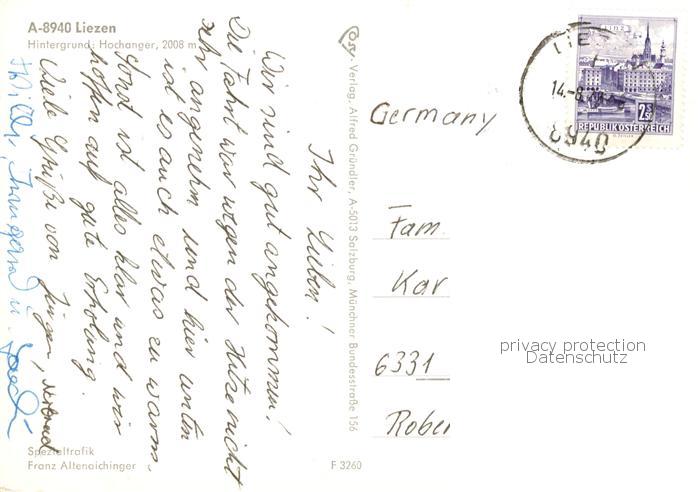 A-8940 Liezen
Hintergrund: Hochanger, 2008 m
Ihr Lieben!
Wir sind gut angekommen!
Die Fahrt war wegen der Hitze nicht
sehr angenehm und hier unten
ist es auch etwas zu warm.
Sonst ist alles klar und wir
hoffen auf gute Erholung.
Viele Grüße von Jürgen,
Willy, Irmgard u.
Post Verlag Alfred Gründler, A-5013 Salzburg, Münchner Bundesstraße 156
Germany
Fam.
Kar
6331
Rober
LINZ
2S
REPUBLIK ÖSTERREICH
LIE
14.-8.
8940
privacy protection
Datenschutz
Spezialtrafik
Franz Altenaichinger
F 3260